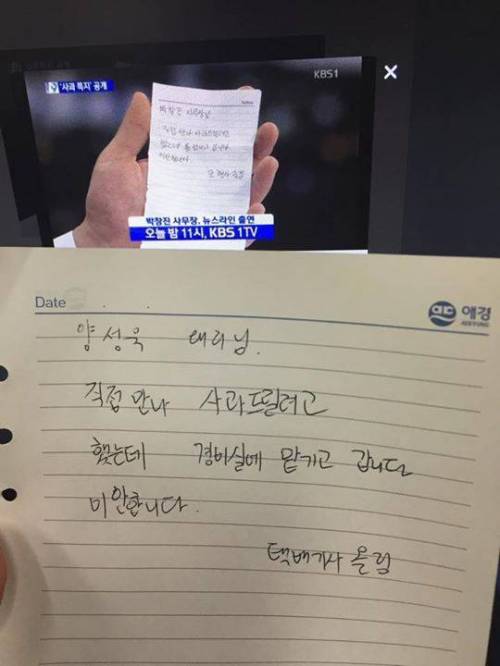 '사과 쪽지' 공개
KBS1
박창진 사무장님
직접 만나
박창진 사무장, 뉴스라인 출연
오늘 밤 11시, KBS 1TV
Date . .
애경
AEKYUNG
양성욱 대리님.
직접 만나 사과드릴려고
했는데 경비실에 맡기고 갑니다
미안합니다.
택배기사 올림